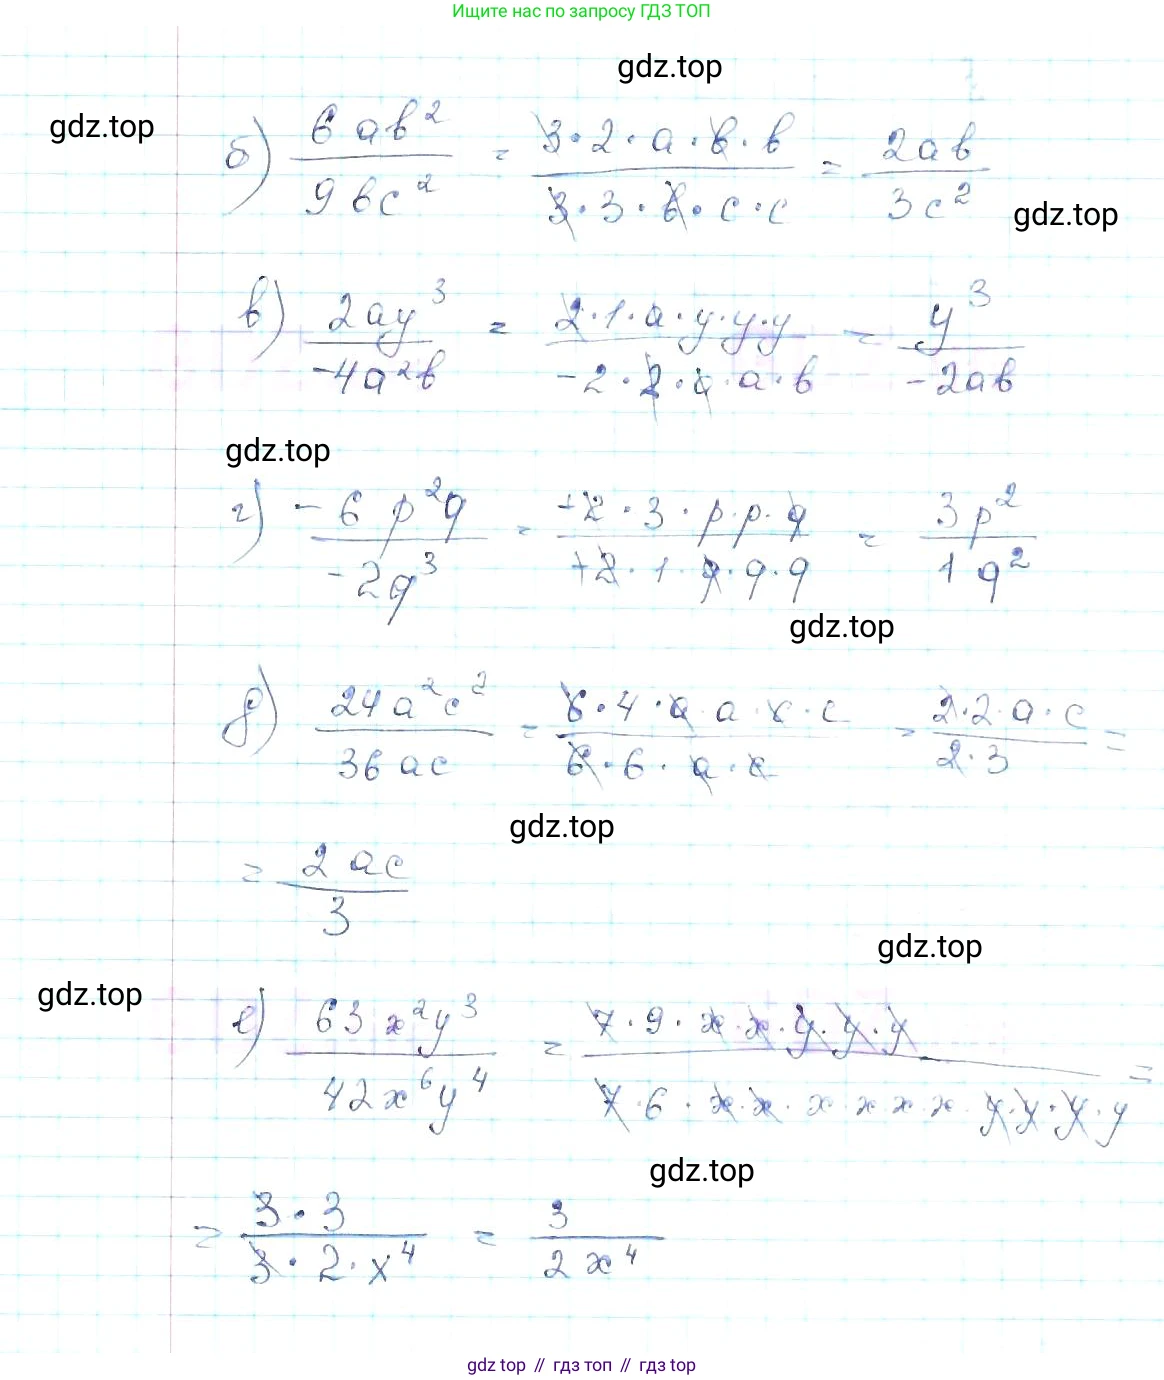 Ищите нас по запросу ГДЗ ТОП
gdz.top
gdz.top
б) 6ab²/9bc² = 3·2·a·b·b/3·3·b·c·c = 2ab/3c²
gdz.top
в) 2ay³/-4a²b = 2·1·a·y·y·y/-2·2·a·a·b = y³/-2ab
gdz.top
г) -6p²q/-2q³ = +2·3·p·p·q/+2·1·q·q·q = 3p²/1q²
gdz.top
д) 24a²c²/36ac = 6·4·a·a·c·c/6·6·a·c = 2·2·a·c/2·3 =
gdz.top
= 2ac/3
gdz.top
gdz.top
е) 63x²y³/42x⁶y⁴ = 7·9·x·x·y·y·y/7·6·x·x·x·x·x·x·y·y·y·y =
gdz.top
= 3·3/3·2·x⁴ = 3/2x⁴
gdz top // гдз топ // гдз top